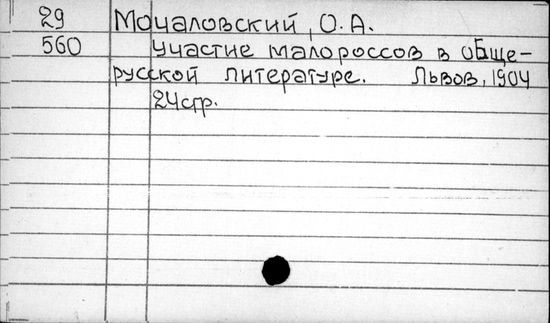 29 Моцаловский, О. А.
560 Участие малороссов в обще-
русской литературе. Львов, 1904
24стр.